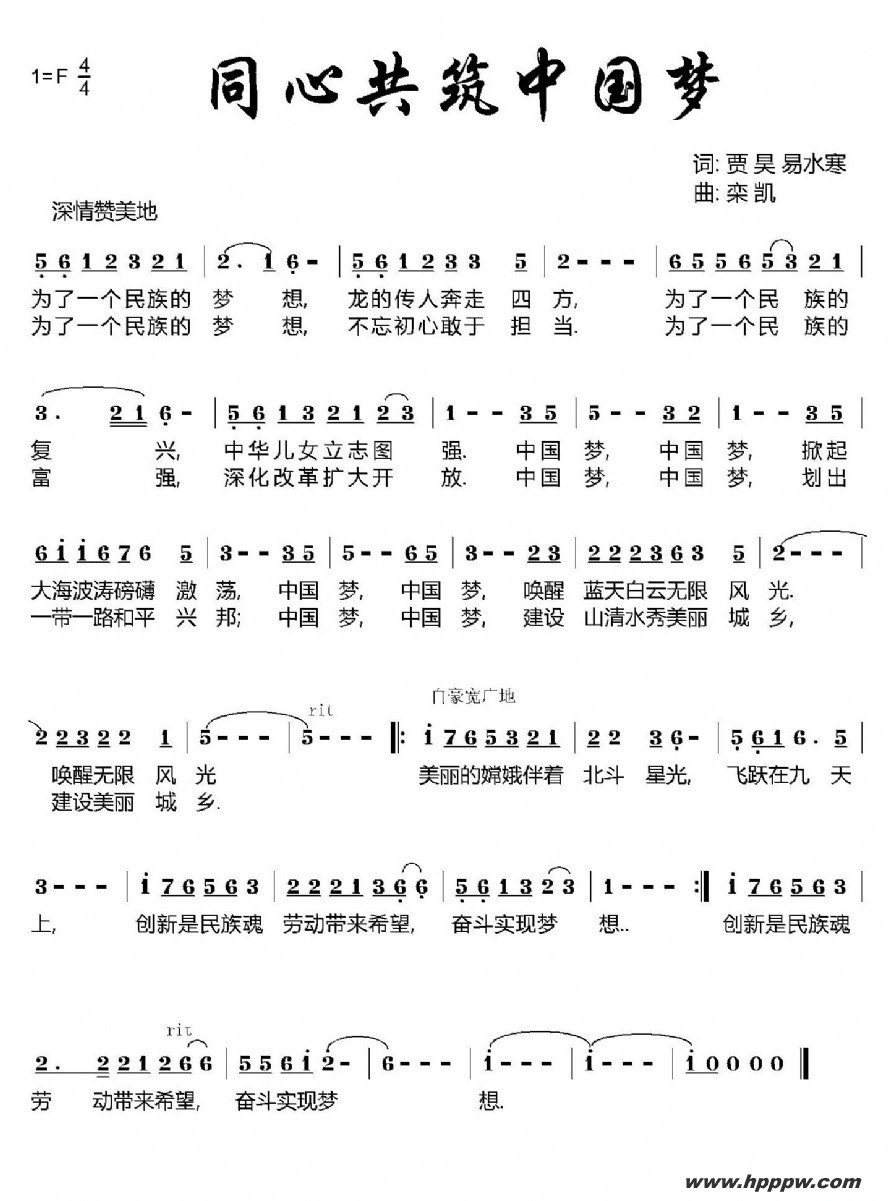 1=F 4/4
同心共筑中国梦
词: 贾 昊 易水寒
曲: 栾 凯
深情赞美地
5 6 1 2 3 2 1 | 2 . 1 6 - - | 5 6 1 2 3 3 5 | 2 - - - | 6 5 5 6 5 3 2 1 |
为了一个民族的 梦 想, 龙的传人奔走 四 方, 为了一个民 族的
为了一个民族的 梦 想, 不忘初心敢于 担 当. 为了一个民 族的
3 . 2 1 6 - | 5 6 1 3 2 1 2 3 | 1 - - 3 5 | 5 - - 3 2 | 1 - - 3 5 |
复 兴, 中华儿女立志图 强. 中国 梦, 中国 梦, 掀起
富 强, 深化改革扩大开 放. 中国 梦, 中国 梦, 划出
6 1 1 6 7 6 5 | 3 - - 3 5 | 5 - - 6 5 | 3 - - 2 3 | 2 2 2 3 6 3 5 | 2 - - - |
大海波涛磅礴 激 荡, 中国 梦, 中国 梦, 唤醒 蓝天白云无限 风 光.
一带一路和平 兴 邦; 中国 梦, 中国 梦, 建设 山清水秀美丽 城 乡,
rit
自豪宽广地
2 2 3 2 2 1 | 5 - - - | 5 - - - |: 1 7 6 5 5 3 2 1 | 2 2 3 6 - | 5 6 1 6 . 5 |
唤醒无限 风 光 美丽的嫦娥伴着 北斗 星光, 飞跃在九 天
建设美丽 城 乡.
3 - - - | 1 7 6 5 6 3 | 2 2 2 1 3 6 6 | 5 6 1 3 2 2 3 | 1 - - - :| 1 7 6 5 6 3 |
上, 创新是民族魂 劳动带来希望, 奋斗实现梦 想.. 创新是民族魂
rit
2 . 2 2 1 2 6 6 | 5 5 6 1 2 - - | 6 - - - | 1 - - - | 1 - - - | 1 0 0 0 0 ‖
劳 动带来希望, 奋斗实现梦 想.
www.hpppw.com